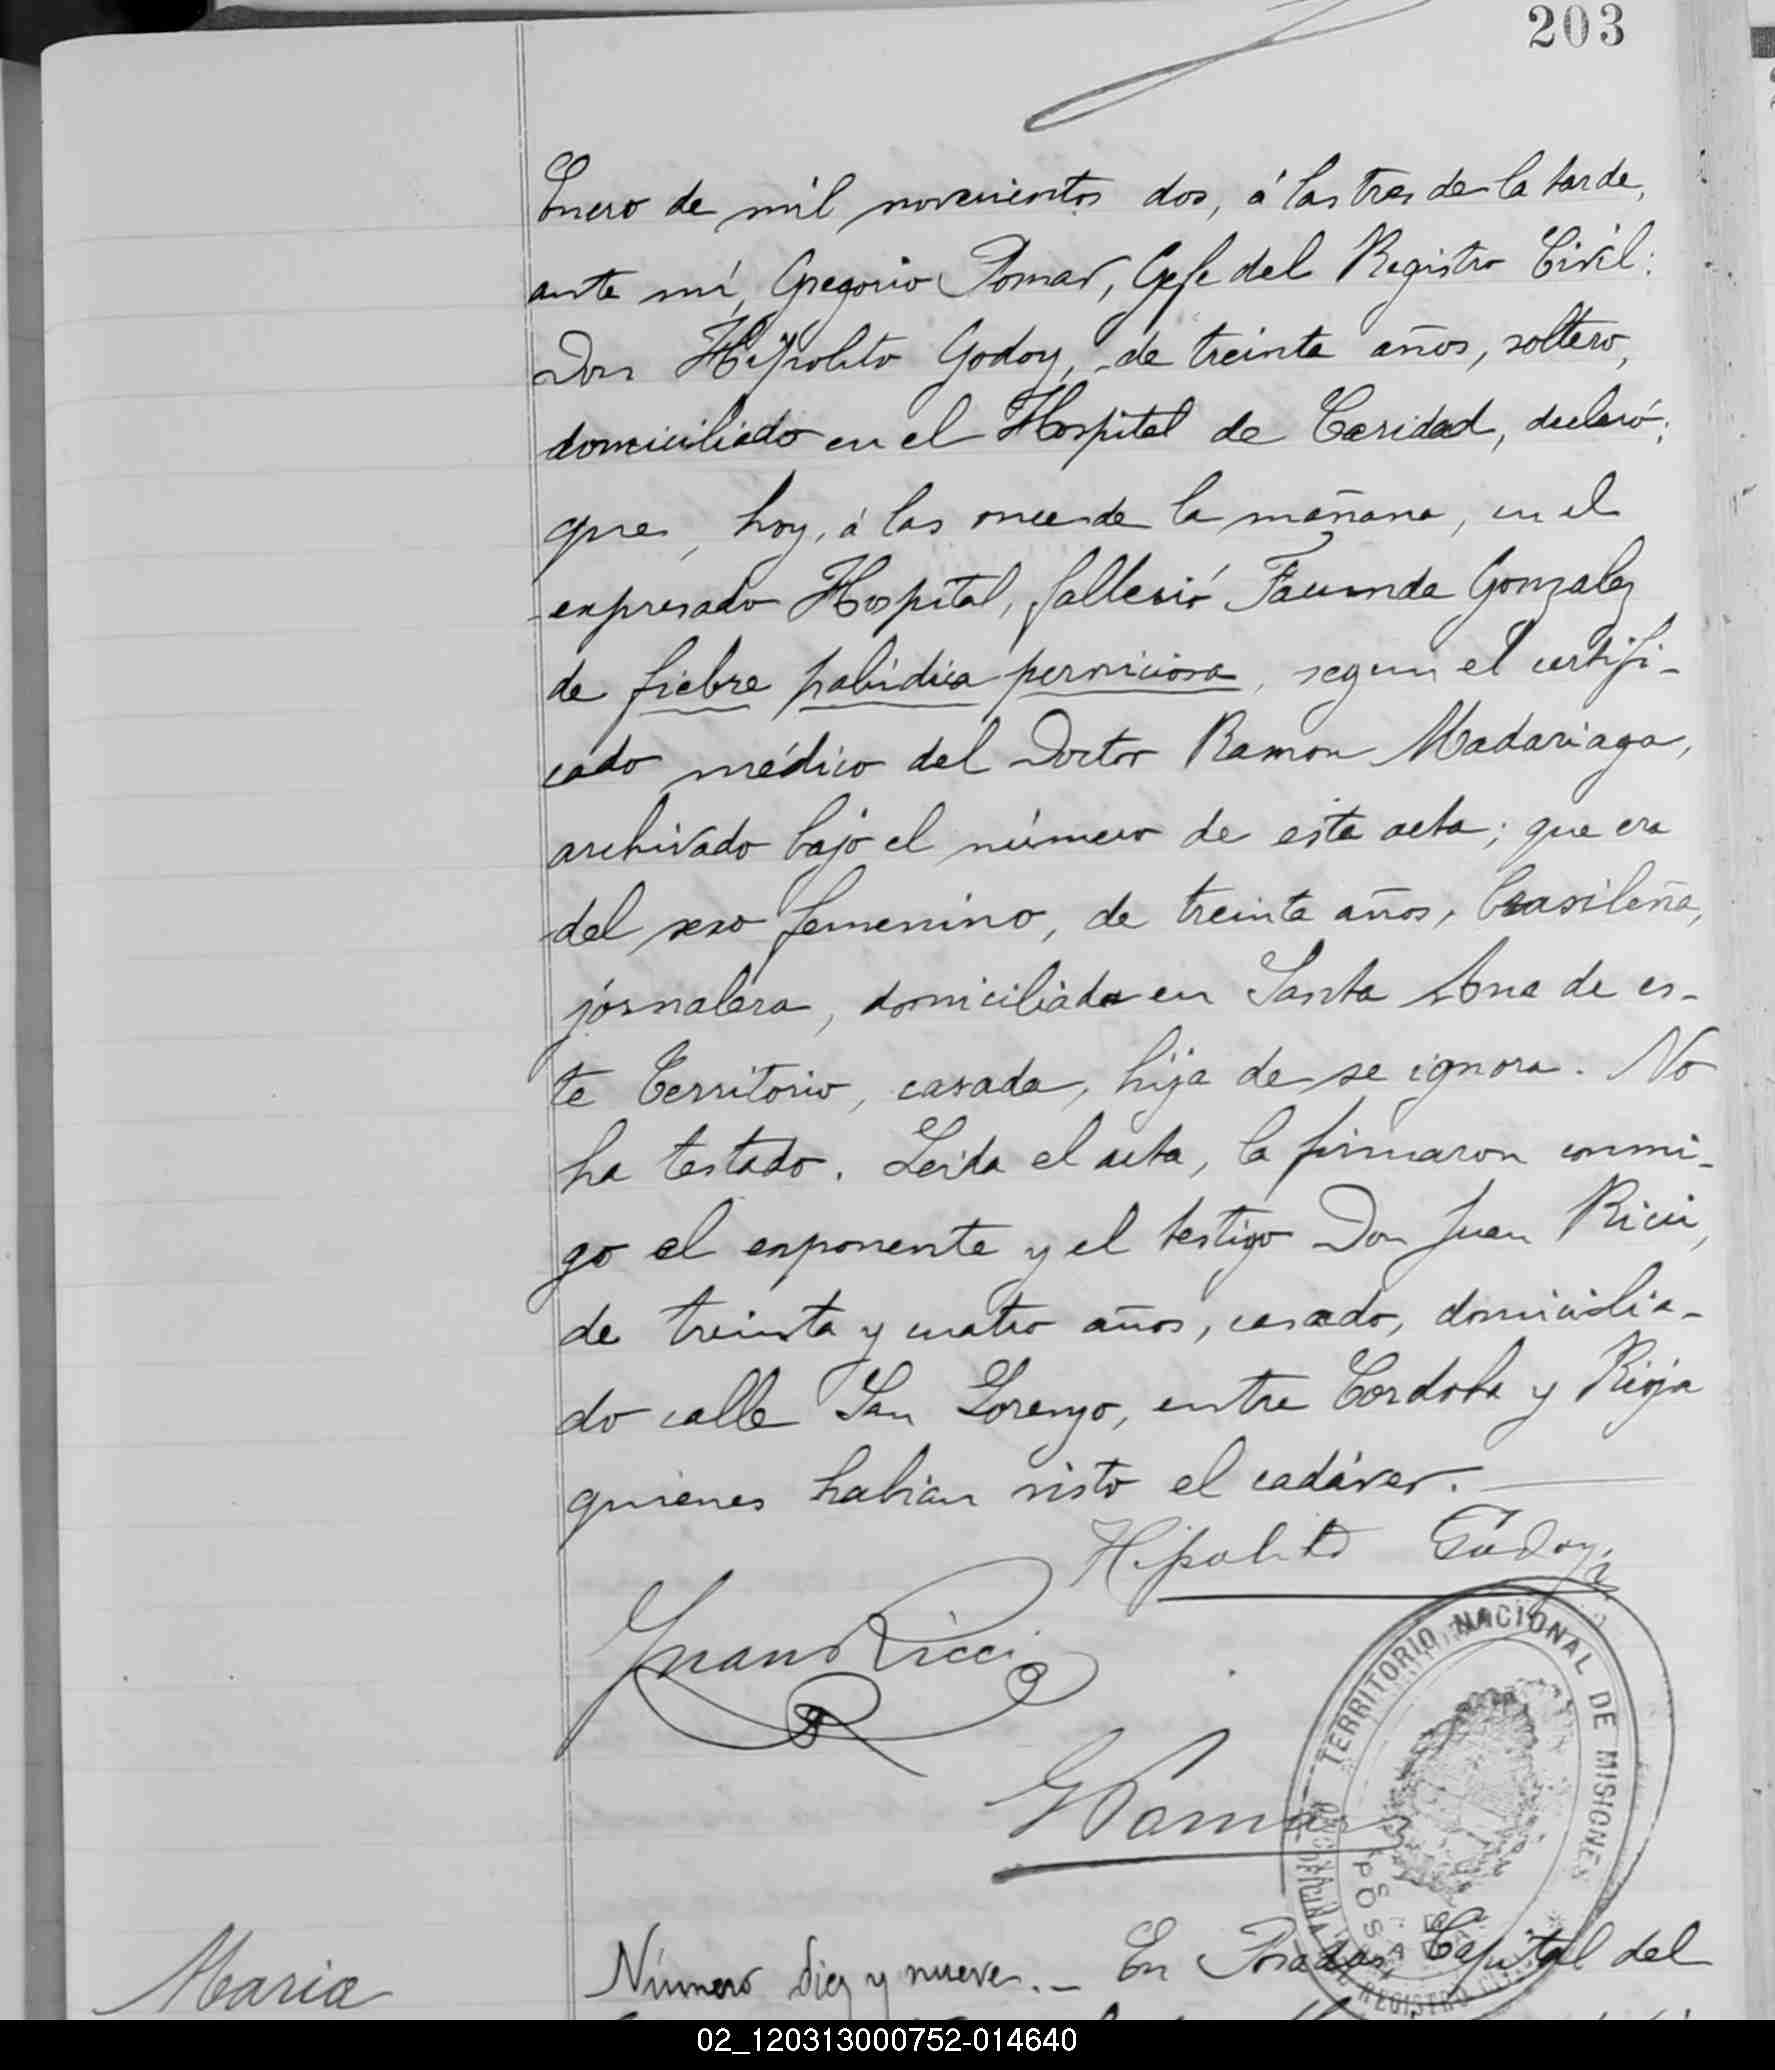 203
Enero de mil novecientos dos, á las tres de la tarde,
ante mí, Gregorio Pomar, Gefe del Registro Civil:
Don Hipolito Godoy, de treinta años, soltero,
domiciliado en el Hospital de Caridad, declaró:
que, hoy, á las once de la mañana, en el
expresado Hospital, falleció Facunda Gonzalez
de fiebre palúdica perniciosa, segun el certifi-
cado médico del Doctor Ramon Madariaga,
archivado bajo el número de esta acta; que era
del sexo femenino, de treinta años, brasileña,
jornalera, domiciliada en Santa Ana de es-
te Territorio, casada, hija de se ignora. No
ha testado. Leida el acta, la firmaron conmi-
go el exponente y el testigo Don Juan Ricci,
de treinta y cuatro años, casado, domicilia-
do calle San Lorenzo, entre Cordoba y Rioja
quienes habian visto el cadáver.
Hipolito Godoy
Juan Ricci
GPomar
TERRITORIO NACIONAL DE MISIONES
OFICINA REGISTRO CIVIL
POSADAS
Maria
Número diez y nueve. – En Posadas Capital del
02_120313000752-014640